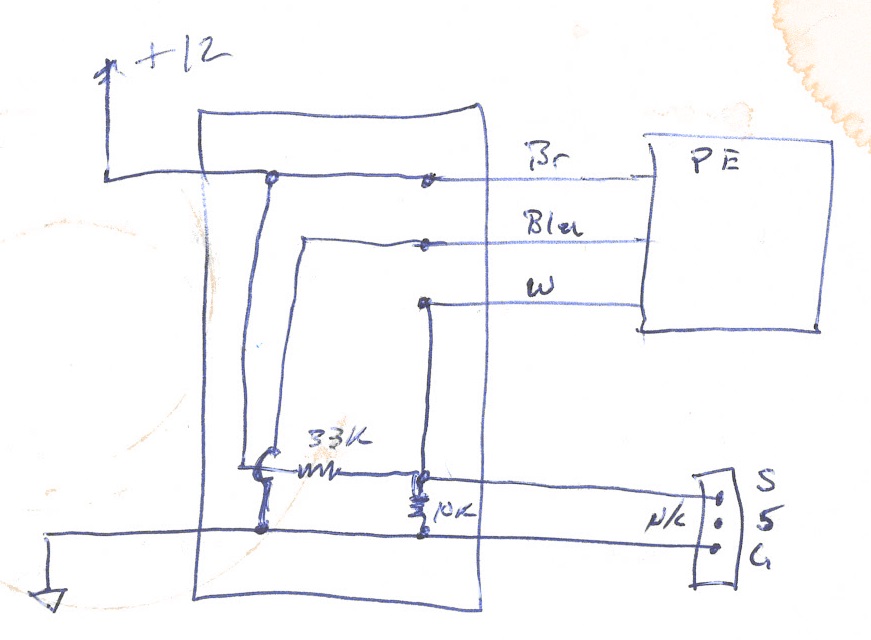 +12
Br
PE
Blu
W
33K
S
10K
N/C
5
G